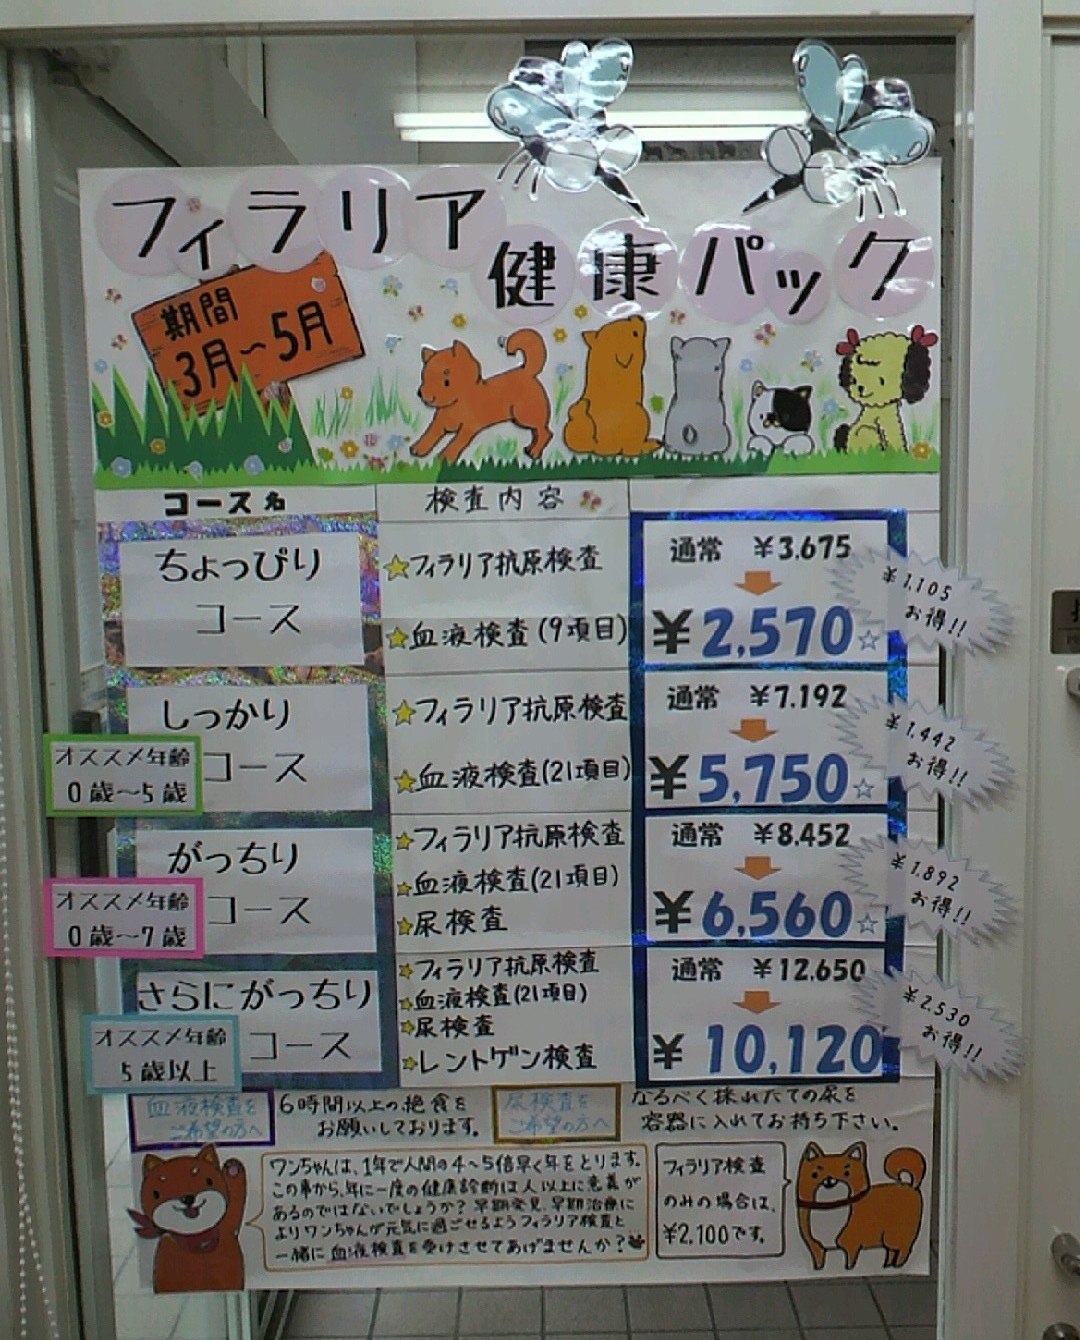 フィラリア
健康パック
期間
3月〜5月
コース名
検査内容
ちょっぴり
コース
☆フィラリア抗原検査
☆血液検査(9項目)
通常 ¥3.675
¥2,570☆
¥1,105
お得!!
しっかり
コース
オススメ年齢
0歳〜5歳
☆フィラリア抗原検査
☆血液検査(21項目)
通常 ¥7.192
¥5,750☆
¥1,442
お得!!
がっちり
コース
オススメ年齢
0歳〜7歳
☆フィラリア抗原検査
☆血液検査(21項目)
☆尿検査
通常 ¥8.452
¥6,560☆
¥1,892
お得!!
さらにがっちり
コース
オススメ年齢
5歳以上
☆フィラリア抗原検査
☆血液検査(21項目)
☆尿検査
☆レントゲン検査
通常 ¥12.650
¥10,120
¥2,530
お得!!
血液検査を
ご希望の方へ
6時間以上の絶食を
お願いしております。
尿検査を
ご希望の方へ
なるべく採れたての尿を
容器に入れてお持ち下さい。
ワンちゃんは、1年で人間の4〜5倍早く年をとります。
この事から、年に一度の健康診断は人以上に意義が
あるのではないでしょうか?早期発見、早期治療に
よりワンちゃんが元気に過ごせるようフィラリア検査と
一緒に血液検査を受けさせてあげませんか?
フィラリア検査
のみの場合は、
¥2,100です。